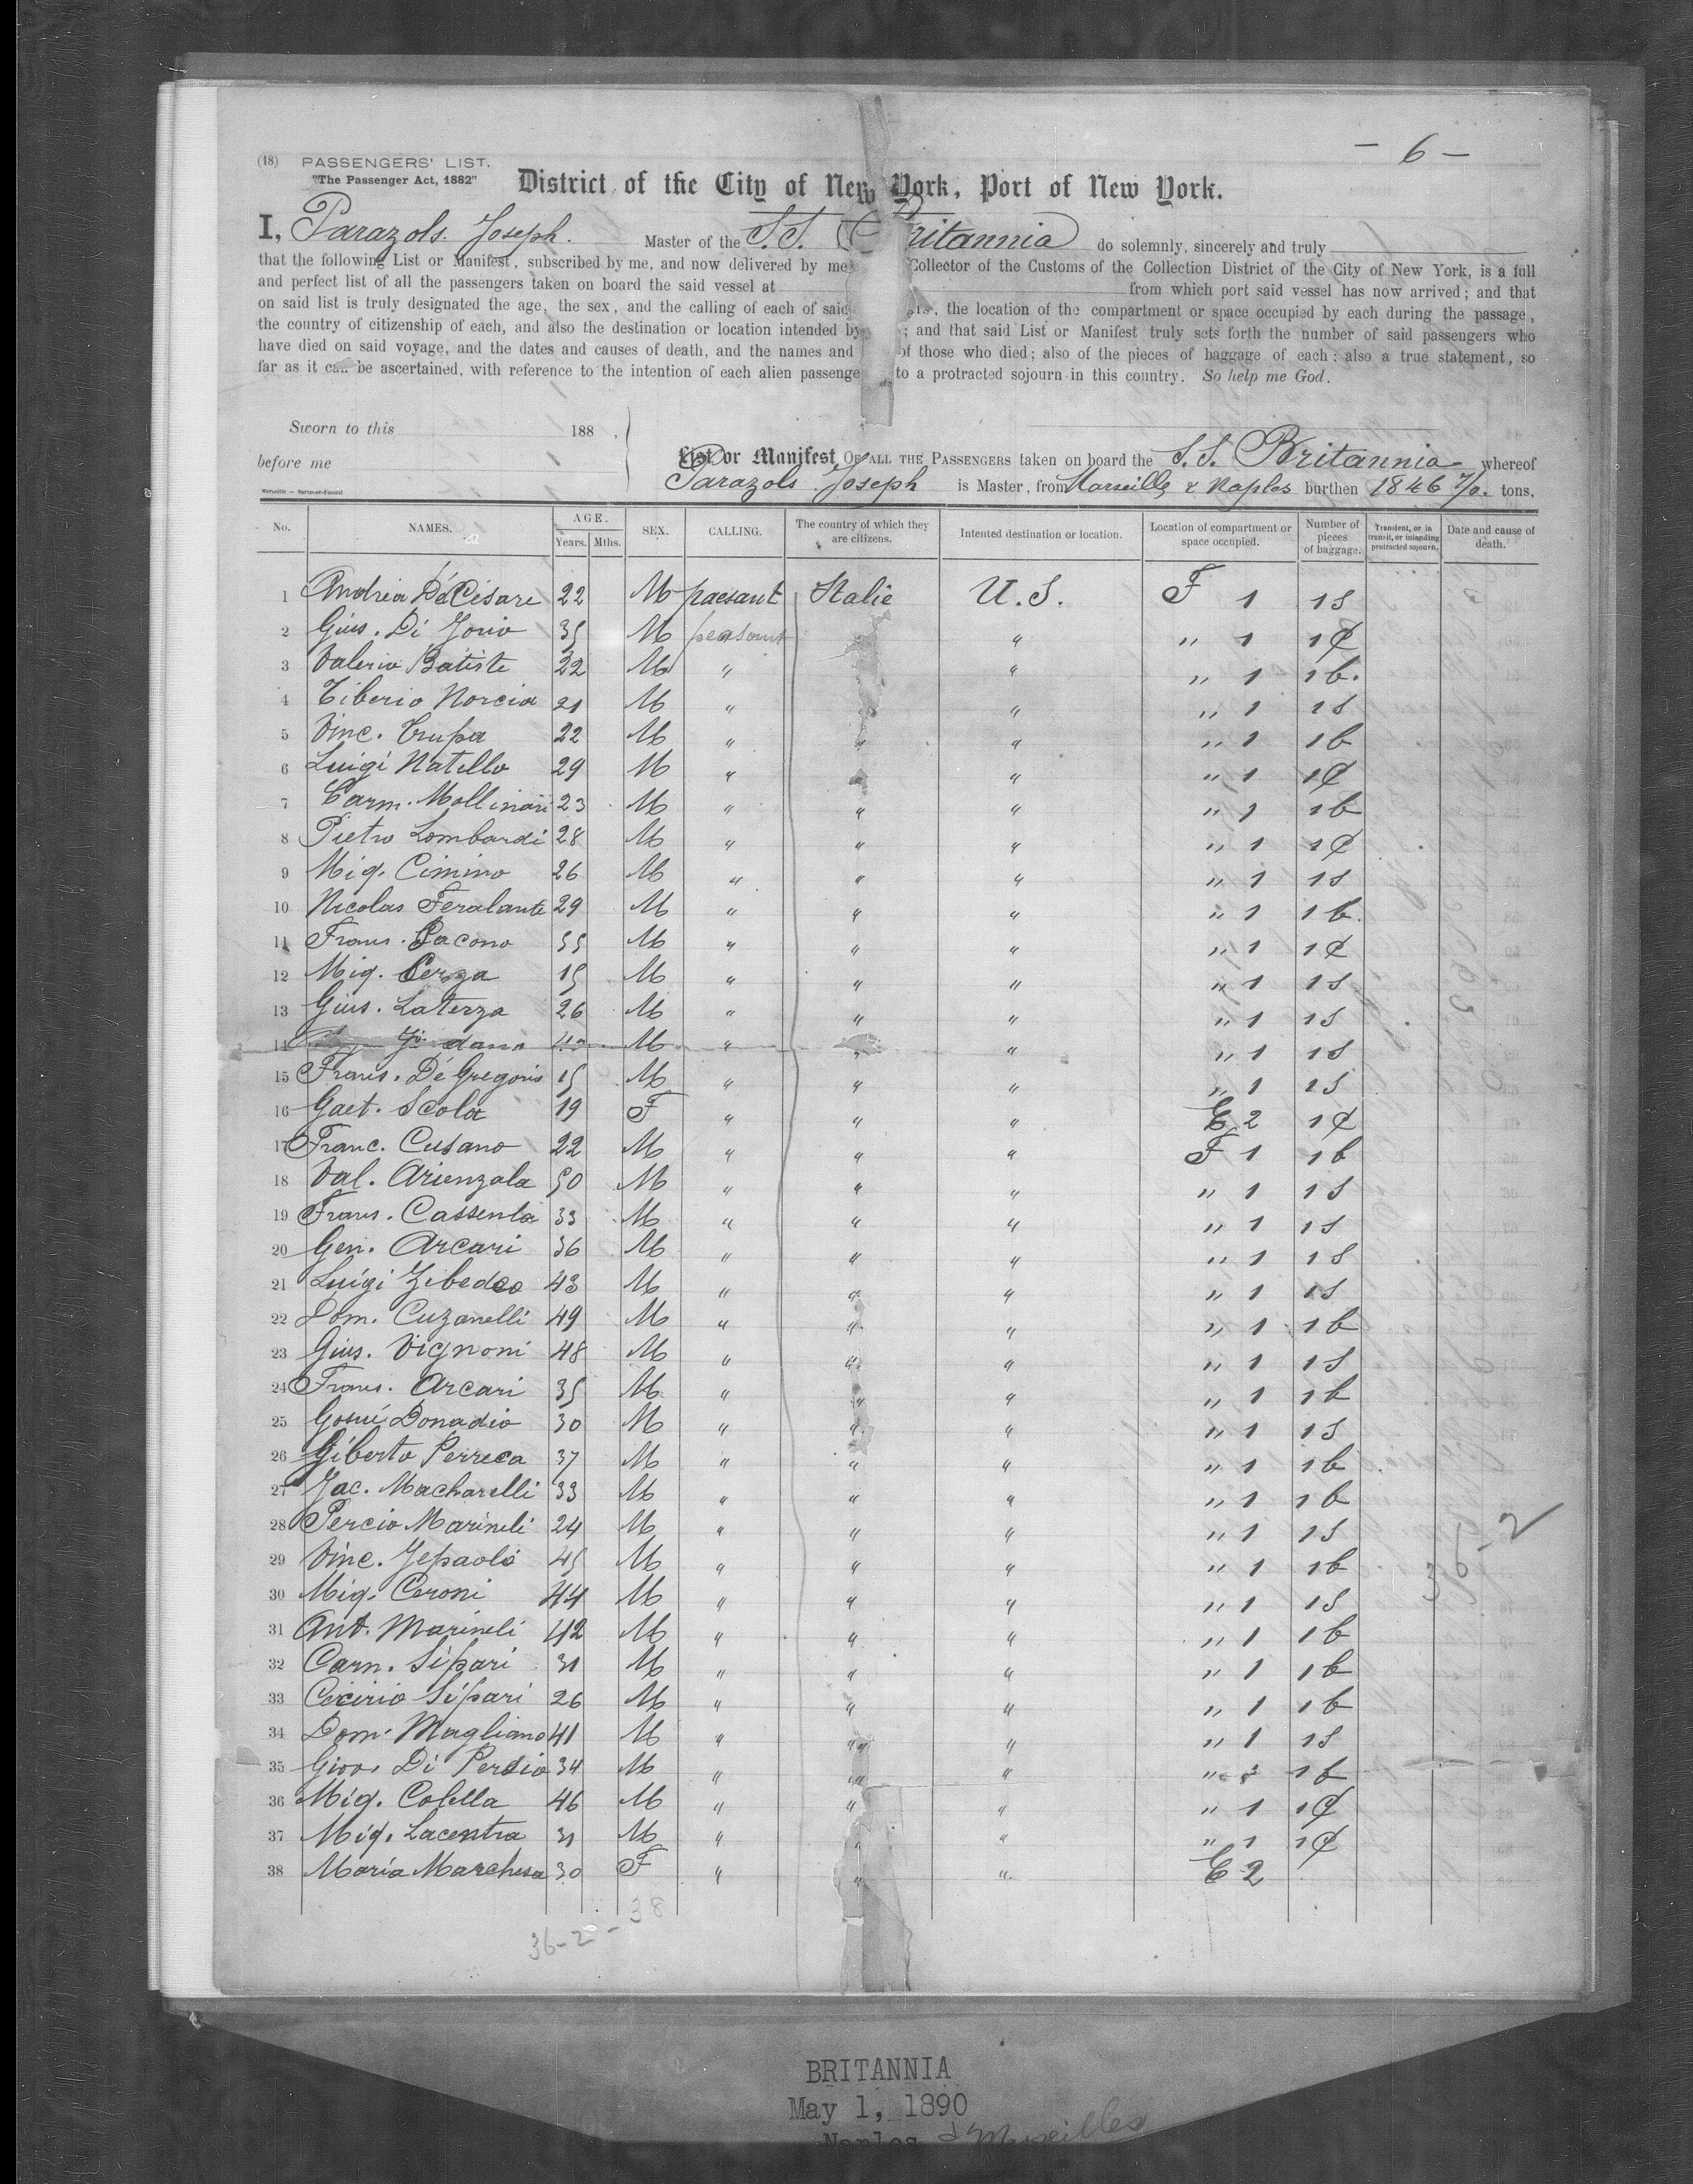 - 6 -
(18) PASSENGERS' LIST.
"The Passenger Act, 1882"
District of the City of New York, Port of New York.
I, Parazols Joseph. Master of the S.S. Britannia do solemnly, sincerely and truly
that the following List or Manifest, subscribed by me, and now delivered by me Collector of the Customs of the Collection District of the City of New York, is a full
and perfect list of all the passengers taken on board the said vessel at from which port said vessel has now arrived; and that
on said list is truly designated the age, the sex, and the calling of each of said the location of the compartment or space occupied by each during the passage,
the country of citizenship of each, and also the destination or location intended by ; and that said List or Manifest truly sets forth the number of said passengers who
have died on said voyage, and the dates and causes of death, and the names and of those who died; also of the pieces of baggage of each: also a true statement, so
far as it can be ascertained, with reference to the intention of each alien passenge to a protracted sojourn in this country. So help me God.
Sworn to this 188 .
before me
List or Manifest OF ALL THE PASSENGERS taken on board the S.S. Britannia whereof
Parazols Joseph is Master, from Marseille & Naples burthen 1846 7/0. tons,
No. NAMES. AGE. Years. Mths. SEX. CALLING. The country of which they are citizens. Intented destination or location. Location of compartment or space occupied. Number of pieces of baggage. Transient, or in transit, or intending protracted sojourn. Date and cause of death.
1 Andrea De Césare 22 M paesant Italie U.S. F 1 1S
2 Gius. Di Jorio 35 M peasant " " 1 1C
3 Valerio Batiste 22 M " " " 1 1b.
4 Tiberio Norcia 21 M " " " " 1 1S
5 Vinc. Trupa 22 M " " " " 1 1b
6 Luigi Natillo 29 M " " " " 1 1C
7 Carm. Mollinari 23 M " " " " 1 1b
8 Pietro Lombardi 28 M " " " " 1 1C
9 Mig. Cimino 26 M " " " " 1 1S
10 Nicolas Feralante 29 M " " " " 1 1b.
11 Frans. Iacono 55 M " " " " 1 1C
12 Mig. Cerza 15 M " " " " 1 1S
13 Gius. Laterza 26 M " " " " 1 1S
14 dano M " " " " 1 1S
15 Frans. De Gregoris 15 M " " " " 1 1S
16 Gaet. Scola 19 F " " " E 2 1C
17 Franc. Cusano 22 M " " " F 1 1b
18 Val. Arienzala 50 M " " " " 1 1S
19 Frans. Cassenla 33 M " " " " 1 1S
20 Gen. Arcari 36 M " " " " 1 1S
21 Luigi Zibedeo 43 M " " " " 1 1S
22 Dom. Cuzanelli 49 M " " " " 1 1b
23 Gius. Vignoni 48 M " " " " 1 1S
24 Frans. Arcari 35 M " " " " 1 1b
25 Gosué Donadio 30 M " " " " 1 1S
26 Giberto Perreca 37 M " " " " 1 1b
27 Jac. Macharelli 33 M " " " " 1 1b
28 Percio Marineli 24 M " " " " 1 1S
29 Vinc. Jepaolo 45 M " " " " 1 1b
30 Mig. Ceroni 44 M " " " " 1 1S
31 Ant. Marineli 42 M " " " " 1 1b
32 Carn. Sipari 31 M " " " " 1 1b
33 Cecirio Sipari 26 M " " " " 1 1b
34 Dom. Magliano 41 M " " " " 1 1S
35 Giov. Di Perdio 34 M " " " " 1b
36 Mig. Colella 46 M " " " " 1 1C
37 Mig. Lacentra 31 M " " " " 1 1C
38 Maria Marchesa 30 F " " " E 2
36-2
36-2-38
BRITANNIA
May 1, 1890
Naples & Marseilles